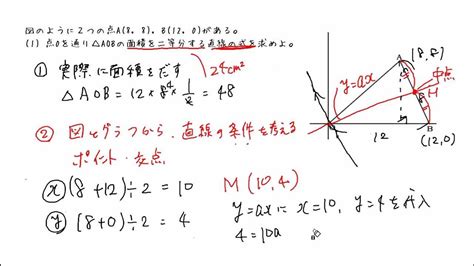 図のように2つの点A(8, 8)、B(12, 0)がある。
(1) 点Oを通り△AOBの面積を二等分する直線の式を求めよ。
① 実際に面積をだす
24cm²
△AOB=12×8×1/2=48
4
② 図とグラフから、直線の条件を考える
ポイント・交点
ⓧ(8+12)÷2=10
ⓨ(8+0)÷2=4
M(10,4)
y=axにx=10, y=4を代入
4=10a
(8,8)
中点
M
y=ax
12
B
(12,0)